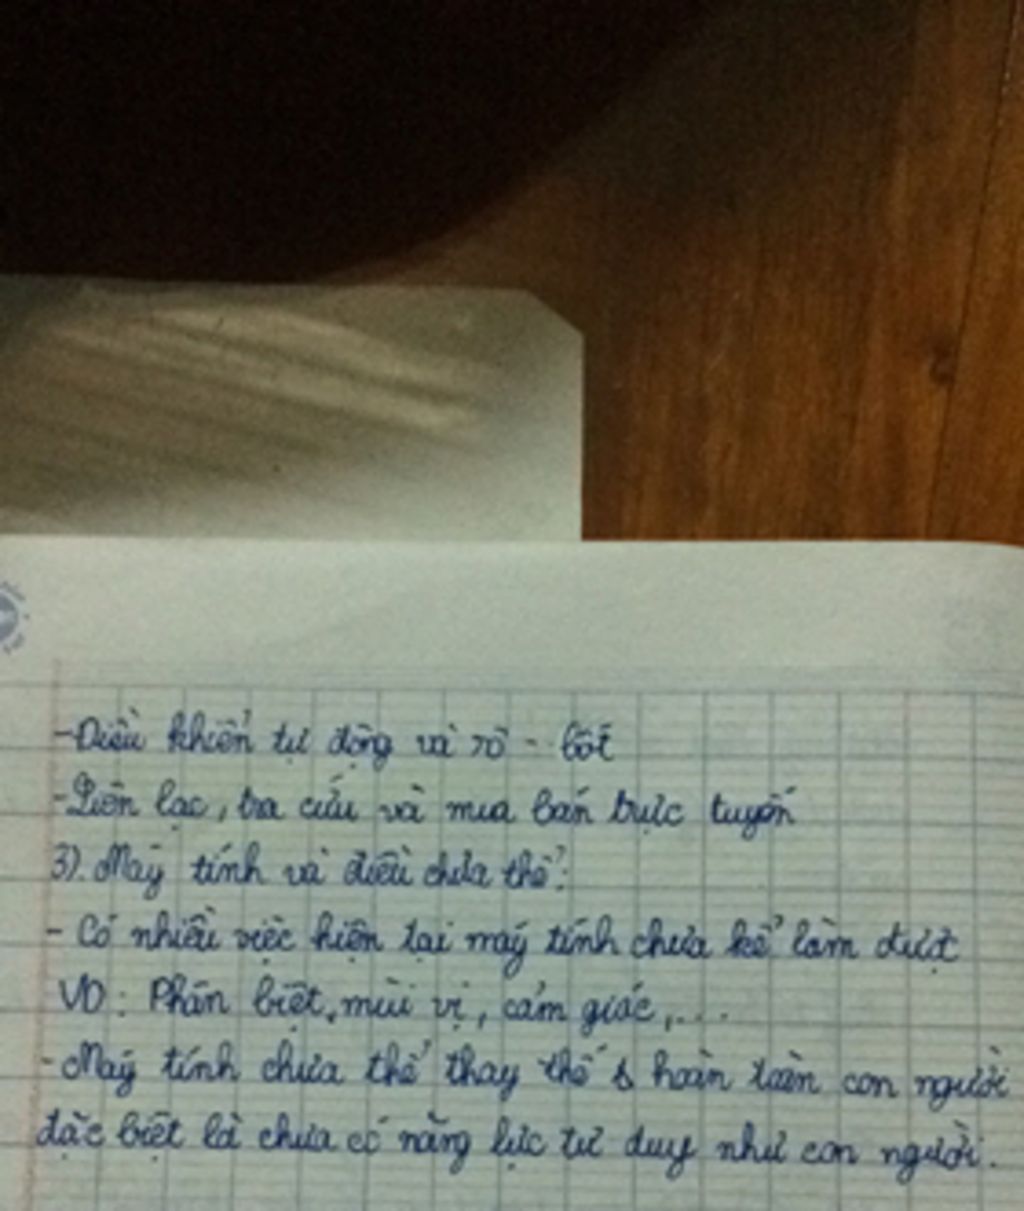 - Điều khiển tự động và rô - bốt
- Liên lạc, tra cứu và mua bán trực tuyến
3). Máy tính và điều chưa thể:
- Có nhiều việc hiện tại máy tính chưa kể làm được
VD: Phân biệt, mùi vị, cảm giác,...
- Máy tính chưa thể thay thế hoàn toàn con người
đặc biệt là chưa có năng lực tư duy như con người.